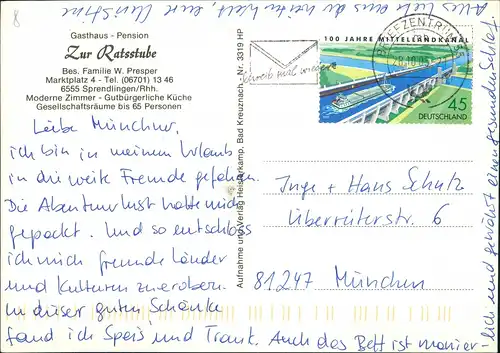 8
Gasthaus - Pension
Zur Ratsstube
Bes. Familie W. Presper
Marktplatz 4 - Tel. (06701) 13 46
6555 Sprendlingen/Rhh.
Moderne Zimmer - Gutbürgerliche Küche
Gesellschaftsräume bis 65 Personen
Liebe Münchner,
ich bin in meinem Urlaub
in die weite Fremde gefahren.
Die Abenteuerlust hatte mich
gepackt. Und so entschloss
ich mich fremde Länder
und Kulturen zu erobern.
In dieser guten Schänke
fand ich Speis und Trank. Auch das Bett ist manier-
lich und gewährt eine gesunde Schlaf.
Alles Liebe aus der weiten Welt, eure Christine
Aufnahme und Verlag Heisterkamp, Bad Kreuznach, Nr. 3319 HP
Schreib mal wieder
BRIEFZENTRUM 55
100 JAHRE MITTELLANDKANAL
45
DEUTSCHLAND
Inge + Hans Schutz
Überreiterstr. 6
81247 München